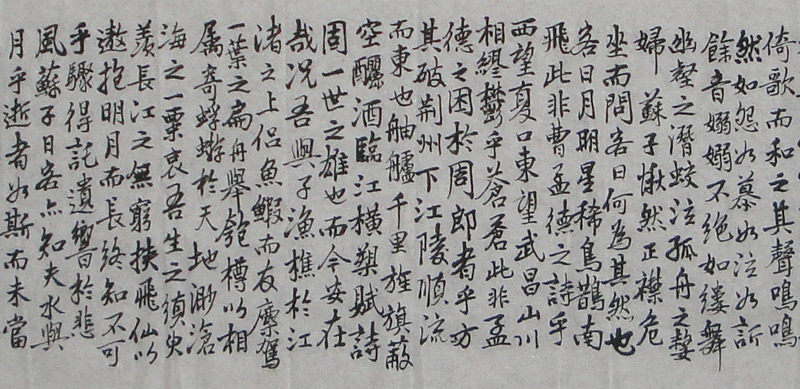 倚歌而和之其聲嗚嗚
然如怨如慕如泣如訴
餘音嫋嫋不絕如縷舞
幽壑之潛蛟泣孤舟之嫠
婦蘇子愀然正襟危
坐而問客曰何為其然也
客曰月明星稀烏鵲南
飛此非曹孟德之詩乎
西望夏口東望武昌山川
相繆鬱乎蒼蒼此非孟
德之困於周郎者乎方
其破荊州下江陵順流
而東也舳艫千里旌旗蔽
空釃酒臨江橫槊賦詩
固一世之雄也而今安在
哉況吾與子漁樵於江
渚之上侶魚鰕而友麋駕
一葉之扁舟舉匏樽以相
屬寄蜉蝣於天地渺滄
海之一粟哀吾生之須臾
羨長江之無窮挾飛仙以
遨抱明月而長終知不可
乎驟得託遺響於悲
風蘇子曰客亦知夫水與
月乎逝者如斯而未當